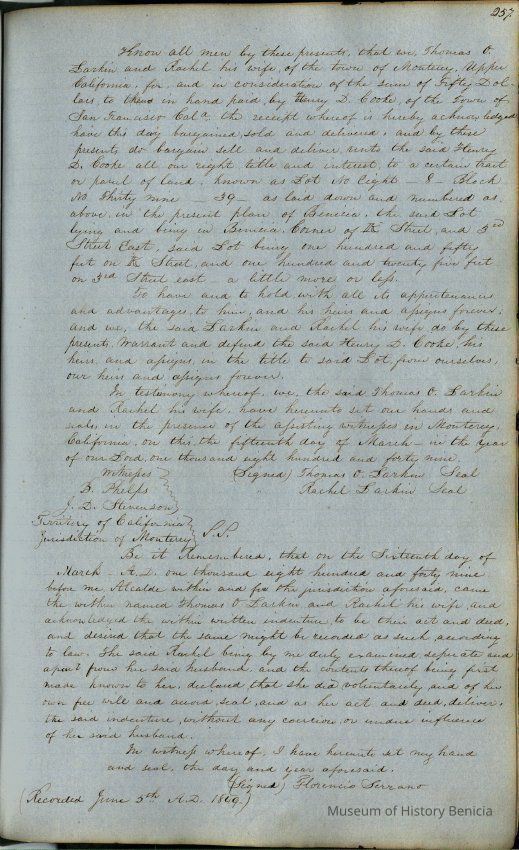 257
Know all men by these presents, that we, Thomas O.
Larkin and Rachel his wife, of the town of Monterey, Upper
California, for, and in consideration of the sum of Fifty Dol-
lars, to them in hand paid, by Henry D. Cooke, of the Town of
San Francisco Cala. the receipt whereof is hereby acknowledged
have this day bargained, sold and delivered, and by these
presents, do bargain sell and deliver, unto the said Henry
D. Cooke all our right title and interest, to a certain tract
or parcel of land, known as Lot No Eight – 8 – Block
No. Thirty nine – 39 – as laid down and numbered as
above, in the present plan of Benicia, the said Lot
lying and being in Benicia, Corner of Street, and 3rd
Street East, said Lot being one hundred and fifty
feet on Street, and one hundred and twenty five feet
on 3rd Street east – a little more or less.
To have and to hold, with all its appurtenances
and advantages, to him, and his heirs and assigns forever,
and we, the said Larkin and Rachel his wife do by these
presents, Warrant and defend the said Henry D. Cooke, his
heirs, and assigns, in the title to said Lot, from ourselves,
our heirs and assigns forever.
In testimony whereof, we, the said Thomas O. Larkin
and Rachel his wife, have hereunto set our hands and
seals, in the presence of the witnesses in Monterey,
California, on this, the fifteenth day of March – in the year
of our Lord, one thousand eight hundred and forty nine.
Witnesses (Signed) Thomas O. Larkin Seal
B. Phelps Rachel Larkin Seal
J. D. Stevenson
Territory of California
Jurisdiction of Monterey S.S.
Be it Remembered, that on the Sixteenth day of
March – A.D. one thousand eight hundred and forty nine
before me, Alcalde within and for the jurisdiction aforesaid, came
the within named Thomas O. Larkin and Rachel his wife, and
acknowledged the within written indenture, to be their act and deed,
and desired that the same might be recorded as such, according
to law. She said Rachel being by me duly examined seperate and
apart from her said husband, and the contents thereof being first
made known to her, declared, that she did voluntarily, and of her
own free will and accord, seal, and as her act and deed, deliver,
the said indenture, without any coercion or undue influence
of her said husband.
In witness whereof, I have hereunto set my hand
and seal, the day and year aforesaid.
(Signed) Florencio Serrano
(Recorded June 5th A.D. 1860.)
Museum of History Benicia